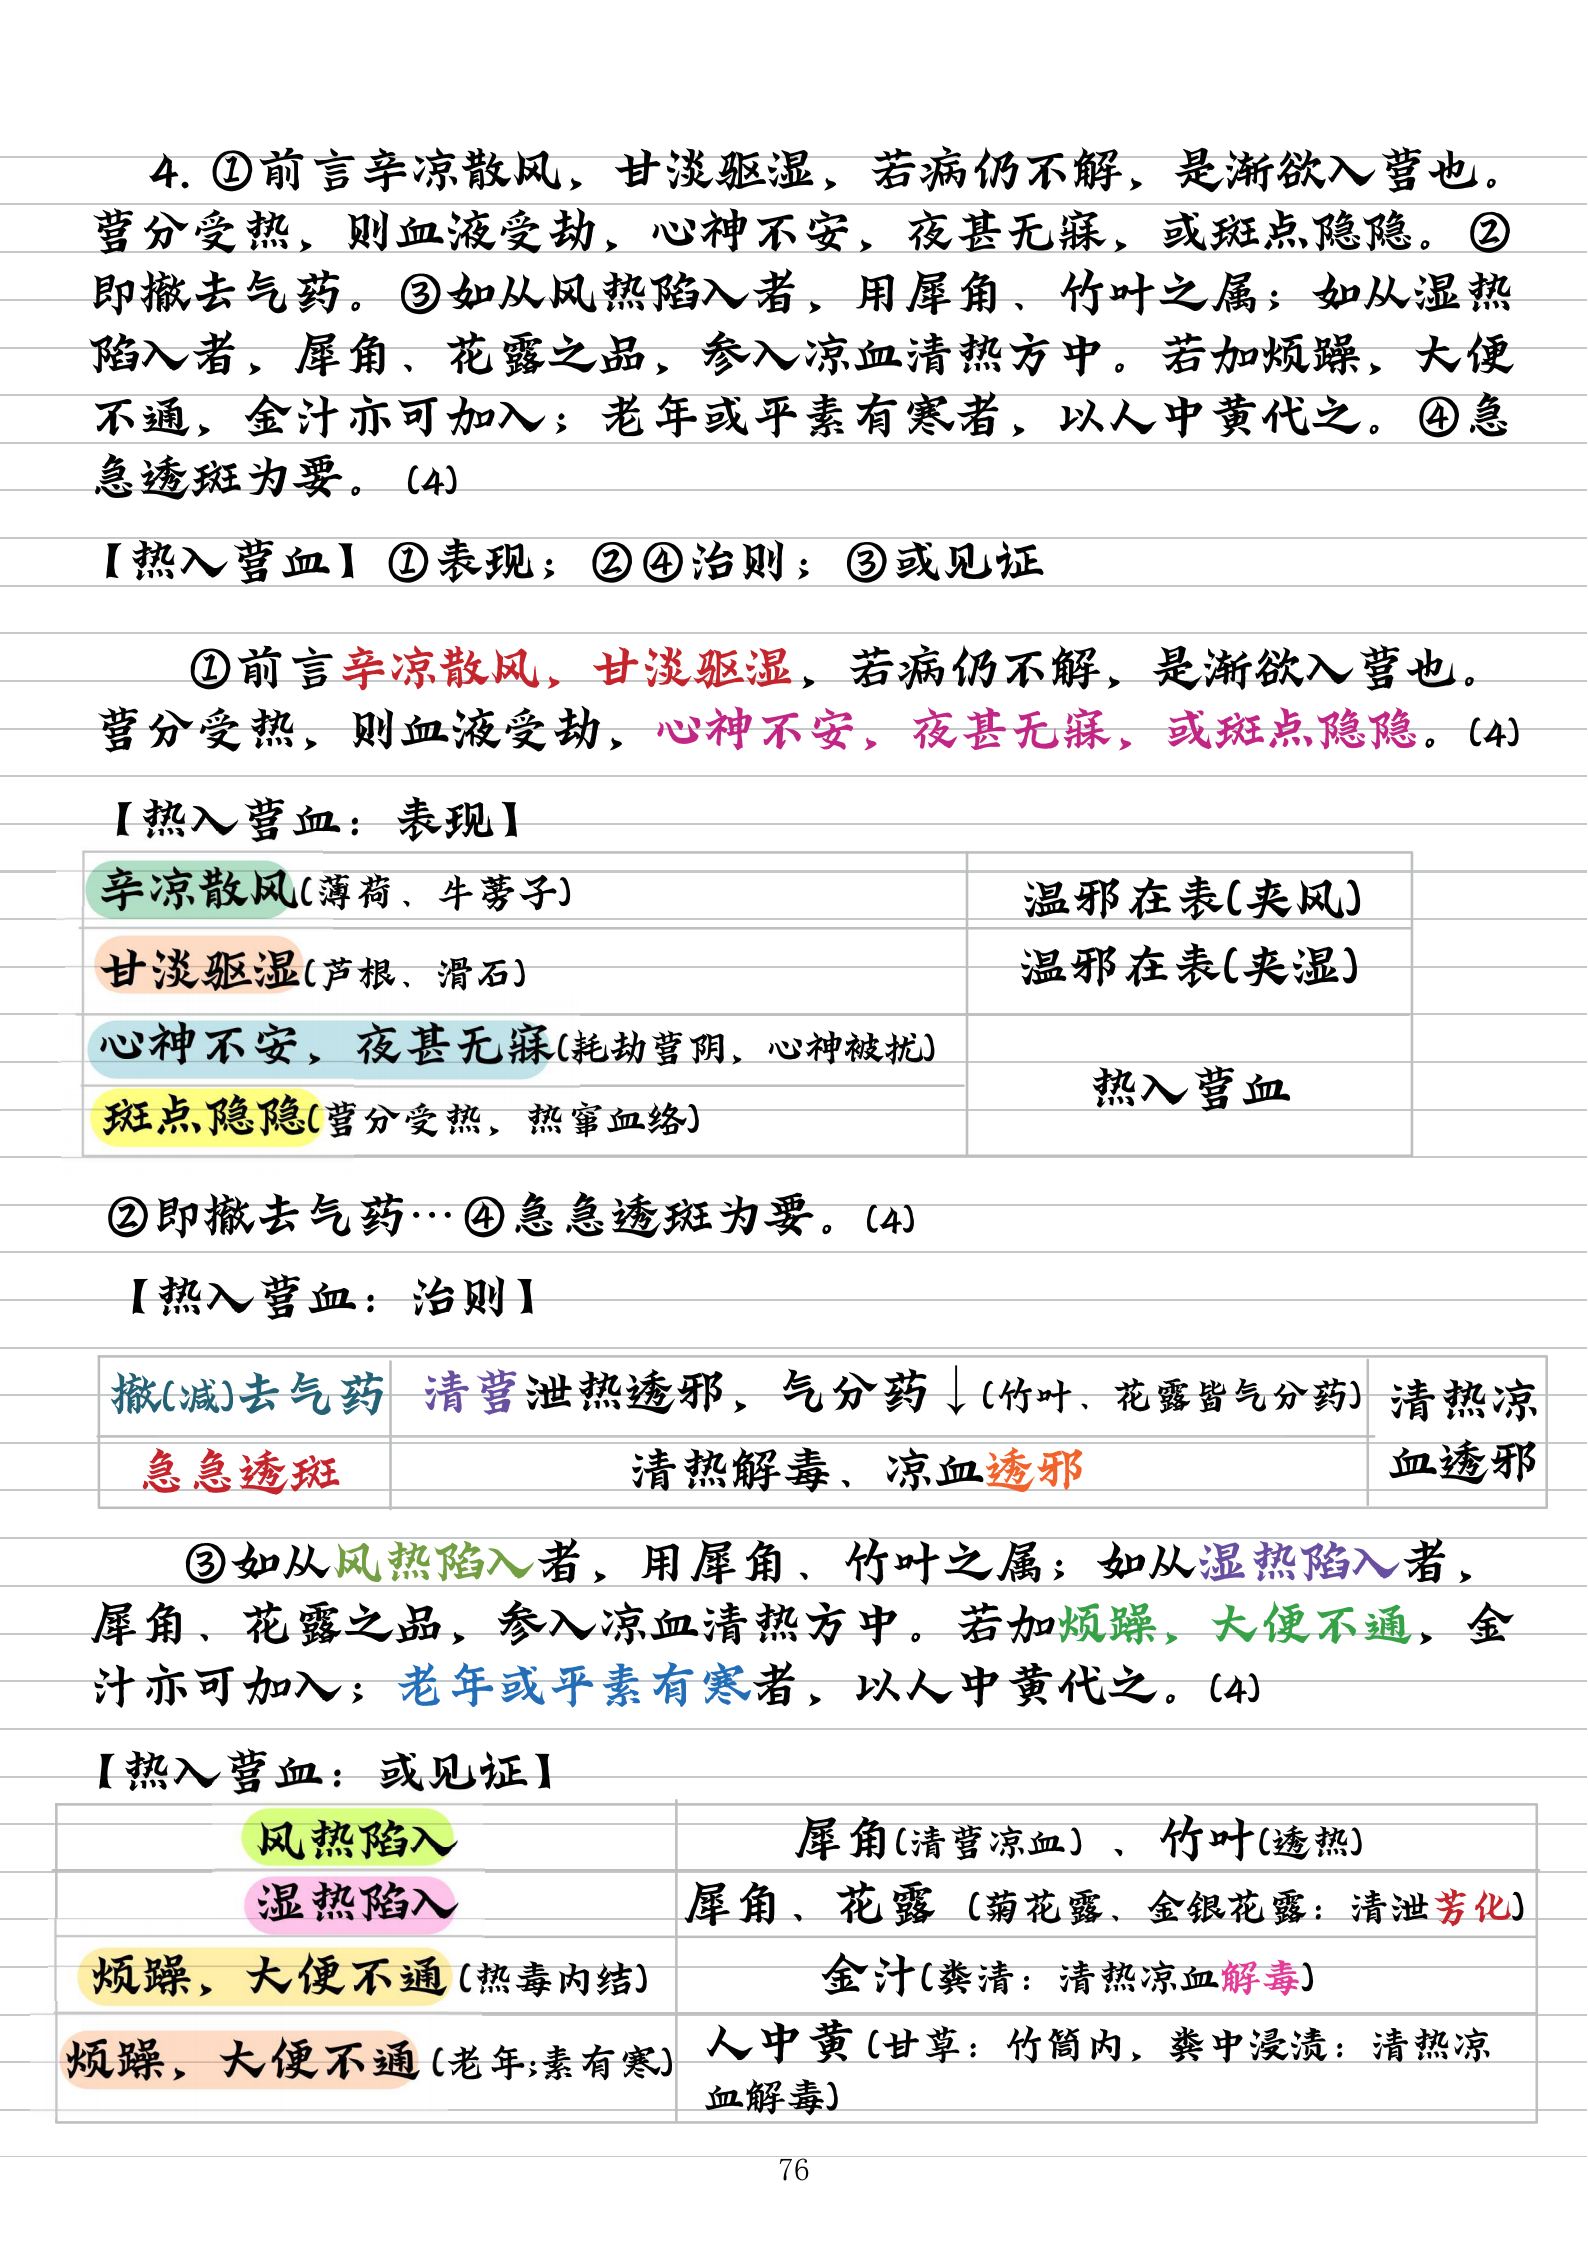 4. ①前言辛凉散风，甘淡驱湿，若病仍不解，是渐欲入营也。
营分受热，则血液受劫，心神不安，夜甚无寐，或斑点隐隐。②
即撤去气药。③如从风热陷入者，用犀角、竹叶之属；如从湿热
陷入者，犀角、花露之品，参入凉血清热方中。若加烦躁，大便
不通，金汁亦可加入；老年或平素有寒者，以人中黄代之。④急
急透斑为要。(4)
【热入营血】①表现；②④治则；③或见证
①前言辛凉散风，甘淡驱湿，若病仍不解，是渐欲入营也。
营分受热，则血液受劫，心神不安，夜甚无寐，或斑点隐隐。(4)
【热入营血：表现】
辛凉散风(薄荷、牛蒡子) 温邪在表(夹风)
甘淡驱湿(芦根、滑石) 温邪在表(夹湿)
心神不安，夜甚无寐(耗劫营阴，心神被扰)
热入营血
斑点隐隐(营分受热，热窜血络)
②即撤去气药…④急急透斑为要。(4)
【热入营血：治则】
撤(减)去气药 清营泄热透邪，气分药↓(竹叶、花露皆气分药) 清热凉
急急透斑 清热解毒、凉血透邪 血透邪
③如从风热陷入者，用犀角、竹叶之属；如从湿热陷入者，
犀角、花露之品，参入凉血清热方中。若加烦躁，大便不通，金
汁亦可加入；老年或平素有寒者，以人中黄代之。(4)
【热入营血：或见证】
风热陷入 犀角(清营凉血)、竹叶(透热)
湿热陷入 犀角、花露 (菊花露、金银花露：清泄芳化)
烦躁，大便不通(热毒内结) 金汁(粪清：清热凉血解毒)
烦躁，大便不通(老年;素有寒) 人中黄(甘草：竹筒内，粪中浸渍：清热凉
血解毒)
76